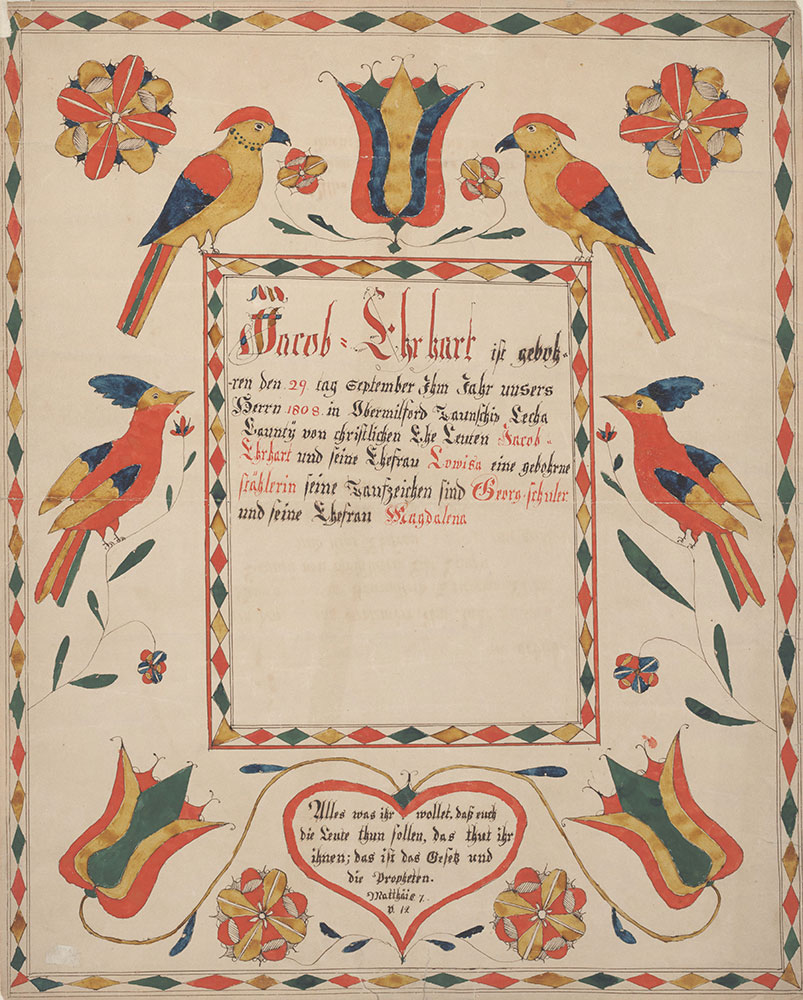 Jacob = Ehrhart ist geboh=
=ren den 29. tag September Ihm Jahr unsers
Herrn 1808 in Obermilford Taunschip Lecha
Caunty von christlichen Ehe Leuten Jacob =
Ehrhart und seine Ehefrau Lowisa eine gebohrne
stählerin seine Taufzeichen sind Georg=schuler
und seine Ehefrau Magdalena
Alles was ihr wollet, daß euch
die Leute thun sollen, das thut ihr
ihnen; das ist das Gesetz und
die Propheten.
Matthäie 7.
v. 12